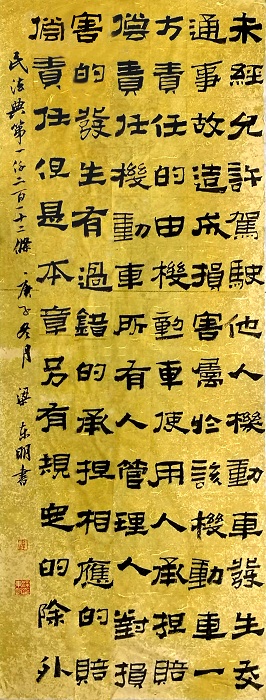 未經允許駕駛他人機動車發生交
通事故造成損害屬於該機動車一
方責任的由機動車使用人承担賠
償責任機動車所有人管理人對損
害的發生有過錯的承担相應的賠
償責任但是本章另有規定的除外
民法典第一仟二百一十二條 庚子冬月 梁东明書